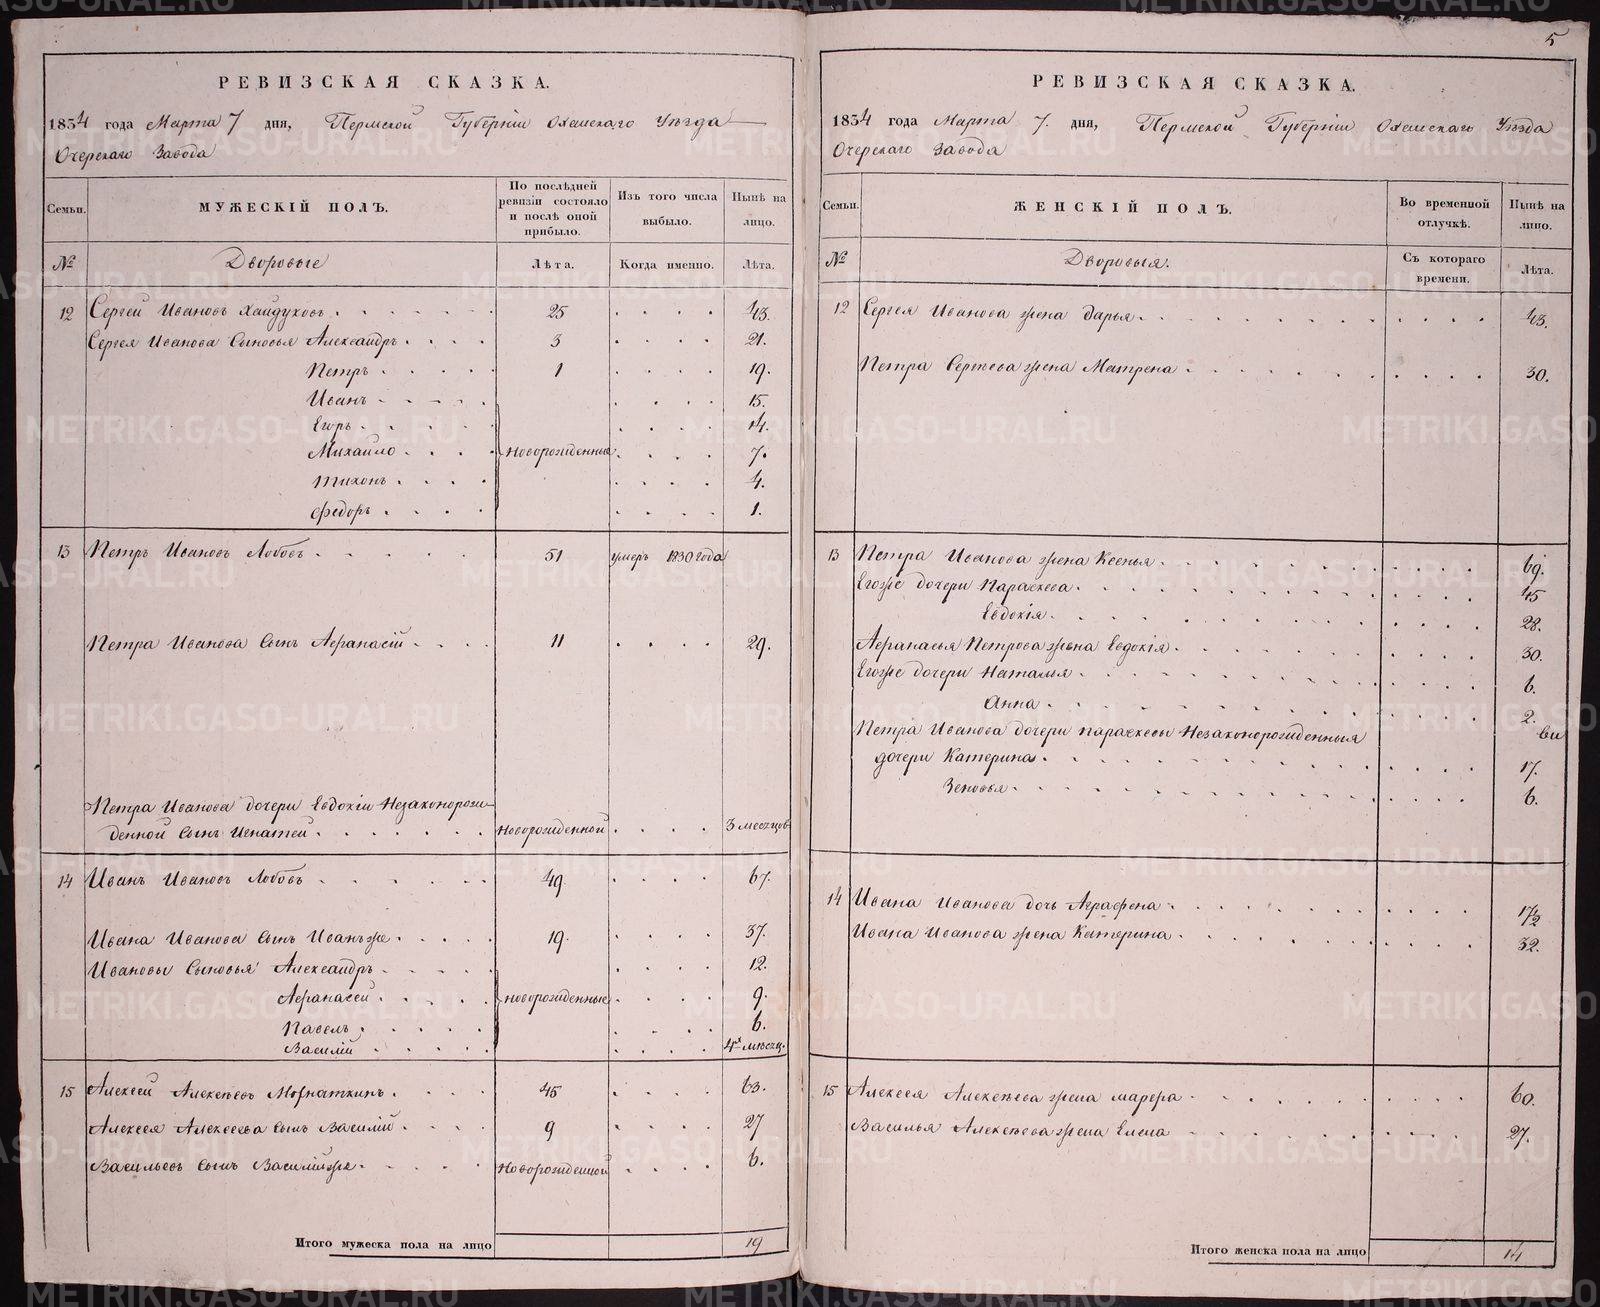 РЕВИЗСКАЯ СКАЗКА.
1834 года Марта 7 дня, Пермской Губерніи Оханскаго Уѣзда
Очерскаго Завода
Семьи.
МУЖЕСКІЙ ПОЛЪ.
По послѣдней ревизіи состояло и послѣ оной прибыло.
Изъ того числа выбыло.
Нынѣ на лицо.
№ Дворовые Лѣта. Когда именно. Лѣта.
12 Сергей Ивановъ Хайдуковъ 25 43.
Сергея Иванова Сыновья Александръ 3 21.
Петръ 1 19.
Иванъ 15.
Егоръ 14.
Михайло Новорожденные 7.
Тихонъ 4.
Федоръ 1.
13 Петръ Ивановъ Лобовъ 51 умеръ 1830 года
Петра Иванова Сынъ Афанасій 11 29.
Петра Иванова дочери Евдокіи Незаконорож-
денной Сынъ Игнатей Новорожденной 3 месяцов
14 Иванъ Ивановъ Лобовъ 49 67.
Ивана Иванова Сынъ Иванъже 19. 37.
Ивановы Сыновья Александръ 12.
Афанасей Новорожденные 9.
Павелъ 6.
Василій 4х мѣсяц.
15 Алексей Алексѣевъ 45 63.
Алексея Алексеева Сынъ Василій 9 27
Васильевъ Сынъ Василійже Новорожденной 6.
Итого мужеска пола на лицо 19
5
РЕВИЗСКАЯ СКАЗКА.
1834 года Марта 7. дня, Пермской Губерніи Оханскаго Уѣзда
Очерскаго Завода
Семьи.
ЖЕНСКІЙ ПОЛЪ.
Во временной отлучкѣ.
Нынѣ на лицо.
№ Дворовыя. Съ котораго времени. Лѣта.
12 Сергея Иванова жена Дарья 43.
Петра Сергѣева жена Матрена 30.
13 Петра Иванова жена Ксенья 69.
Егоже дочери Параскева 45
Евдокія 28.
Афанасья Петрова жена Евдокія 30.
Егоже дочери Наталья 6.
Анна 2.
Петра Иванова дочери Параскевы Незаконорожденныя
дочери Катерина 17.
Зеновья 6.
14 Ивана Иванова дочь Аграфена 17½
Ивана Иванова жена Катерина 32.
15 Алексея Алексѣева жена Марфа 60.
Василья Алексѣева жена Елена 27.
Итого женска пола на лицо 14
METRIKI.GASO-URAL.RU